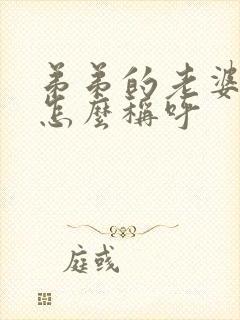 弟弟的老婆
怎麼稱呼
庭彧